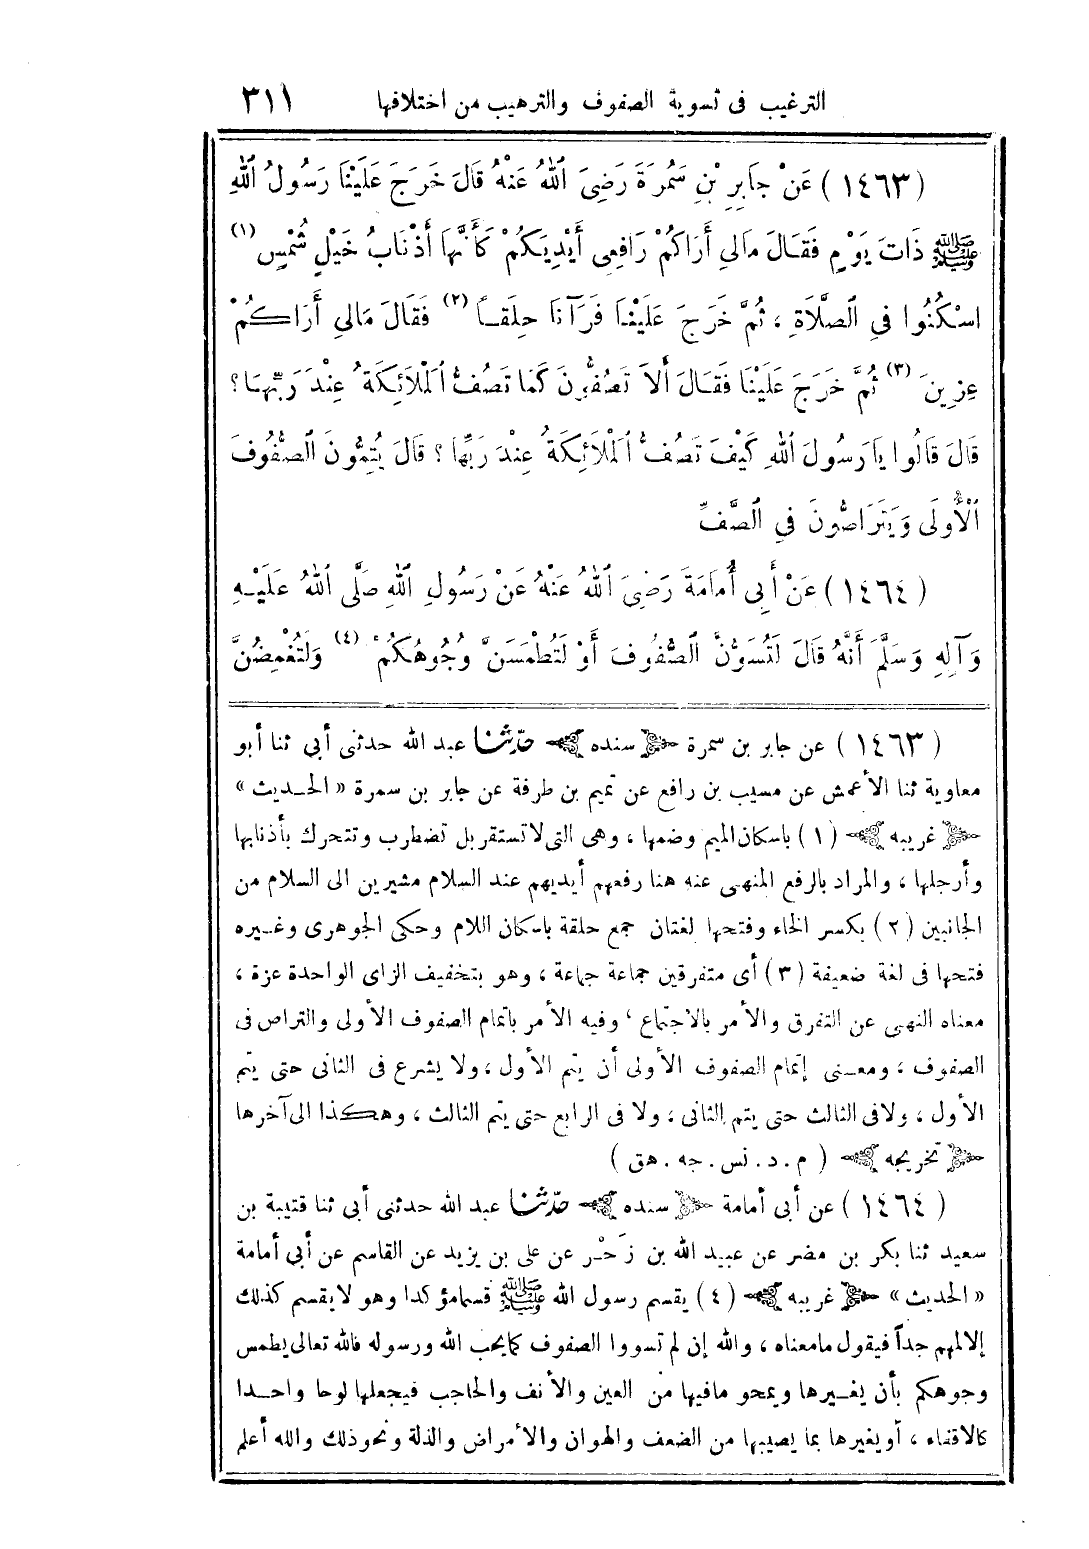 الترغيب فى تسوية الصفوف والترهيب من اختلافها ٣١١
(١٤٦٣) عَنْ جَابِرِ بْنِ سَمُرَةَ رَضِىَ اللهُ عَنْهُ قَالَ خَرَجَ عَلَيْنَا رَسُولُ اللهِ
ﷺ ذَاتَ يَوْمٍ فَقَالَ مَالِى أَرَاكُمْ رَافِعِى أَيْدِيَكُمْ كَأَنَّهَا أَذْنَابُ خَيْلٍ شُمْسٍ (١)
اسْكُنُوا فِى الصَّلَاةِ ، ثُمَّ خَرَجَ عَلَيْنَا فَرَآنَا حِلَقاً (٢) فَقَالَ مَالِى أَرَاكُمْ
عِزِينَ (٣) ثُمَّ خَرَجَ عَلَيْنَا فَقَالَ أَلاَ تَصُفُّونَ كَمَا تَصُفُّ الْمَلَائِكَةُ عِنْدَ رَبِّهَا ؟
قَالَ قَالُوا يَا رَسُولَ اللهِ كَيْفَ تَصُفُّ الْمَلَائِكَةُ عِنْدَ رَبِّهَا ؟ قَالَ يُتِمُّونَ الصُّفُوفَ
الْأُولَى وَيَتَرَاصُّونَ فِى الصَّفِّ
(١٤٦٤) عَنْ أَبِى أُمَامَةَ رَضِىَ اللهُ عَنْهُ عَنْ رَسُولِ اللهِ صَلَّى اللهُ عَلَيْهِ
وَآلِهِ وَسَلَّمَ أَنَّهُ قَالَ لَتُسَوُّنَّ الصُّفُوفَ أَوْ لَتُطْمَسَنَّ وُجُوهُكُمْ (٤) وَلَتُغْمِضُنَّ
(١٤٦٣) عن جابر بن سمرة سنده حدّثنا عبد الله حدثنى أبى ثنا أبو
معاوية ثنا الأعمش عن مسيب بن رافع عن تميم بن طرفة عن جابر بن سمرة «الحديث»
غريبه (١) باسكان الميم وضمها ، وهى التى لا تستقر بل تضطرب وتتحرك بأذنابها
وأرجلها ، والمراد بالرفع المنهى عنه هنا رفعهم أيديهم عند السلام مشيرين الى السلام من
الجانبين (٢) بكسر الحاء وفتحها لغتان جمع حلقة باسكان اللام وحكى الجوهرى وغيره
فتحها فى لغة ضعيفة (٣) أى متفرقين جماعة جماعة ، وهو بتخفيف الزاى الواحدة عزة ،
معناه النهى عن التفرق والأمر بالاجتماع ، وفيه الأمر باتمام الصفوف الأولى والتراص فى
الصفوف ، ومعنى إتمام الصفوف الأولى أن يتم الأول ، ولا يشرع فى الثانى حتى يتم
الأول ، ولا فى الثالث حتى يتم الثانى ، ولا فى الرابع حتى يتم الثالث ، وهكذا الى آخرها
تخريجه (م . د . نس . جه . هق)
(١٤٦٤) عن أبى أمامة سنده حدّثنا عبد الله حدثنى أبى ثنا قتيبة بن
سعيد ثنا بكر بن مضر عن عبيد الله بن زَحْر عن على بن يزيد عن القاسم عن أبى أمامة
«الحديث» غريبه (٤) يقسم رسول الله ﷺ قسما مؤكدا وهو لا يقسم كذلك
إلا لمهم جداً فيقول ما معناه ، والله إن لم تسووا الصفوف كما يحب الله ورسوله فالله تعالى يطمس
وجوهكم بأن يغيرها ويمحو مافيها من العين والأنف والحاجب فيجعلها لوحا واحدا
كالاقفاء ، أو يغيرها بما يصيبها من الضعف والهوان والأمراض والذلة ونحو ذلك والله أعلم